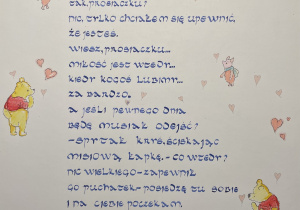 tak, prosiaczku?
nic, tylko chciałem się upewnić,
że jesteś.
wiesz, prosiaczku...
miłość jest wtedy...
kiedy kogoś lubimy...
za bardzo.
a jeśli pewnego dnia
będę musiał odejść?
-spytał krzyś, ściskając
misiową łapkę.-co wtedy?
nic wielkiego-zapewnił
go puchatek-posiedzę tu sobie
i na ciebie poczekam.